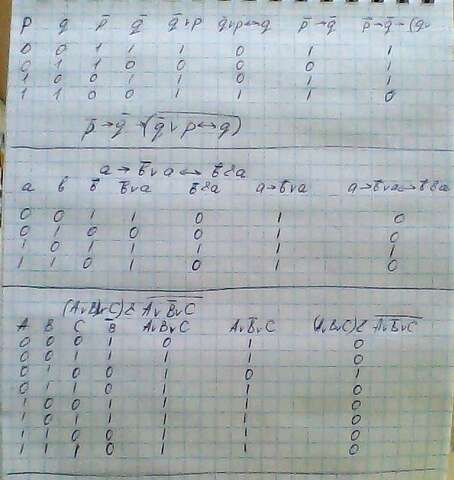 p q p̄ q̄ q̄∨p q̄∨p↔q p̄→q̄ p̄→q̄→(q̄∨
0 0 1 1 1 0 1 1
0 1 1 0 0 0 0 1
1 0 0 1 1 0 1 1
1 1 0 0 1 1 1 0
p̄→q̄→(q̄∨p↔q)
a→в̄∨a↔в̄&a
a в в̄ в̄∨a в̄&a a→в̄∨a a→в̄∨a↔в̄&a
0 0 1 1 0 1 0
0 1 0 0 0 1 0
1 0 1 1 1 1 1
1 1 0 1 0 1 0
(A∨B∨C)&A∨B̄∨C
A B C B̄ A∨B∨C A∨B̄∨C (A∨B∨C)&A∨B̄∨C
0 0 0 1 0 1 0
0 0 1 1 1 1 0
0 1 0 0 1 0 1
0 1 1 0 1 1 0
1 0 0 1 1 1 0
1 0 1 1 1 1 0
1 1 0 0 1 1 0
1 1 1 0 1 1 0